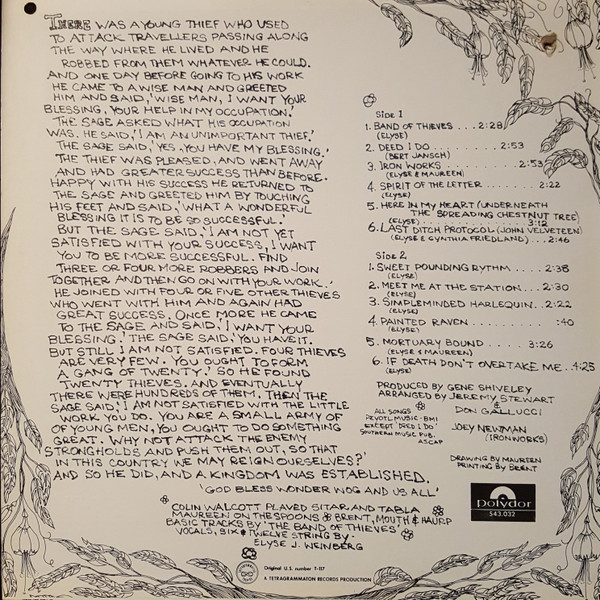 THERE WAS A YOUNG THIEF WHO USED
TO ATTACK TRAVELLERS PASSING ALONG
THE WAY WHERE HE LIVED AND HE
ROBBED FROM THEM WHATEVER HE COULD.
AND ONE DAY BEFORE GOING TO HIS WORK
HE CAME TO A WISE MAN AND GREETED
HIM AND SAID, 'WISE MAN, I WANT YOUR
BLESSING, YOUR HELP IN MY OCCUPATION.'
THE SAGE ASKED WHAT HIS OCCUPATION
WAS. HE SAID, 'I AM AN UNIMPORTANT THIEF.'
THE SAGE SAID, 'YES, YOU HAVE MY BLESSING.'
THE THIEF WAS PLEASED, AND WENT AWAY
AND HAD GREATER SUCCESS THAN BEFORE.
HAPPY WITH HIS SUCCESS HE RETURNED TO
THE SAGE AND GREETED HIM BY TOUCHING
HIS FEET AND SAID, 'WHAT A WONDERFUL
BLESSING IT IS TO BE SO SUCCESSFUL.'
BUT THE SAGE SAID, 'I AM NOT YET
SATISFIED WITH YOUR SUCCESS, I WANT
YOU TO BE MORE SUCCESSFUL. FIND
THREE OR FOUR MORE ROBBERS AND JOIN
TOGETHER AND THEN GO ON WITH YOUR WORK.'
HE JOINED WITH FOUR OR FIVE OTHER THIEVES
WHO WENT WITH HIM AND AGAIN HAD
GREAT SUCCESS. ONCE MORE HE CAME
TO THE SAGE AND SAID, 'I WANT YOUR
BLESSING.' THE SAGE SAID, 'YOU HAVE IT.
BUT STILL I AM NOT SATISFIED. FOUR THIEVES
ARE VERY FEW. YOU OUGHT TO FORM
A GANG OF TWENTY.' SO HE FOUND
TWENTY THIEVES. AND EVENTUALLY
THERE WERE HUNDREDS OF THEM. THEN THE
SAGE SAID, 'I AM NOT SATISFIED WITH THE LITTLE
WORK YOU DO. YOU ARE A SMALL ARMY OF
OF YOUNG MEN, YOU OUGHT TO DO SOMETHING
GREAT. WHY NOT ATTACK THE ENEMY
STRONGHOLDS AND PUSH THEM OUT, SO THAT
IN THIS COUNTRY WE MAY REIGN OURSELVES?'
AND SO HE DID, AND A KINGDOM WAS ESTABLISHED.
'GOD BLESS WONDER WOG AND US ALL'
COLIN WALCOTT PLAYED SITAR AND TABLA
MAUREEN ON THE SPOONS & BRENT, MOUTH & HAURP
BASIC TRACKS BY 'THE BAND OF THIEVES'
VOCALS, SIX & TWELVE STRING BY-
ELYSE J. WEINBERG
SIDE 1
1. BAND OF THIEVES . . . 2:28
(ELYSE)
2. DEED I DO . . . . . . . 2:53
(BERT JANSCH)
3. IRON WORKS . . . . . . 2:53
(ELYSE & MAUREEN)
4. SPIRIT OF THE LETTER . . . . 2:22
(ELYSE)
5. HERE IN MY HEART (UNDERNEATH
THE SPREADING CHESTNUT TREE)
(ELYSE) . . . . . . 3:12
6. LAST DITCH PROTOCOL (JOHN VELVETEEN)
(ELYSE & CYNTHIA FRIEDLAND) . . . 2:46
SIDE 2
1. SWEET POUNDING RYTHM . . . . 2:38
(ELYSE)
2. MEET ME AT THE STATION . . . . 2:30
(ELYSE)
3. SIMPLEMINDED HARLEQUIN . . 2:22
(ELYSE)
4. PAINTED RAVEN . . . . . . . :40
(ELYSE)
5. MORTUARY BOUND . . . . 3:26
(ELYSE & MAUREEN)
6. IF DEATH DON'T OVERTAKE ME . . 4:25
(ELYSE)
PRODUCED BY GENE SHIVELEY
ARRANGED BY JEREMY STEWART
& DON GALLUCCI
JOEY NEWMAN
(IRONWORKS)
ALL SONGS
PEVOTL MUSIC-BMI
EXCEPT 'DEED I DO'
SOUTHERN MUSIC PUB.
ASCAP
DRAWING BY MAUREEN
PRINTING BY BRENT
Polydor
543.032
Original U.S. number T-117
A TETRAGRAMMATON RECORDS PRODUCTION